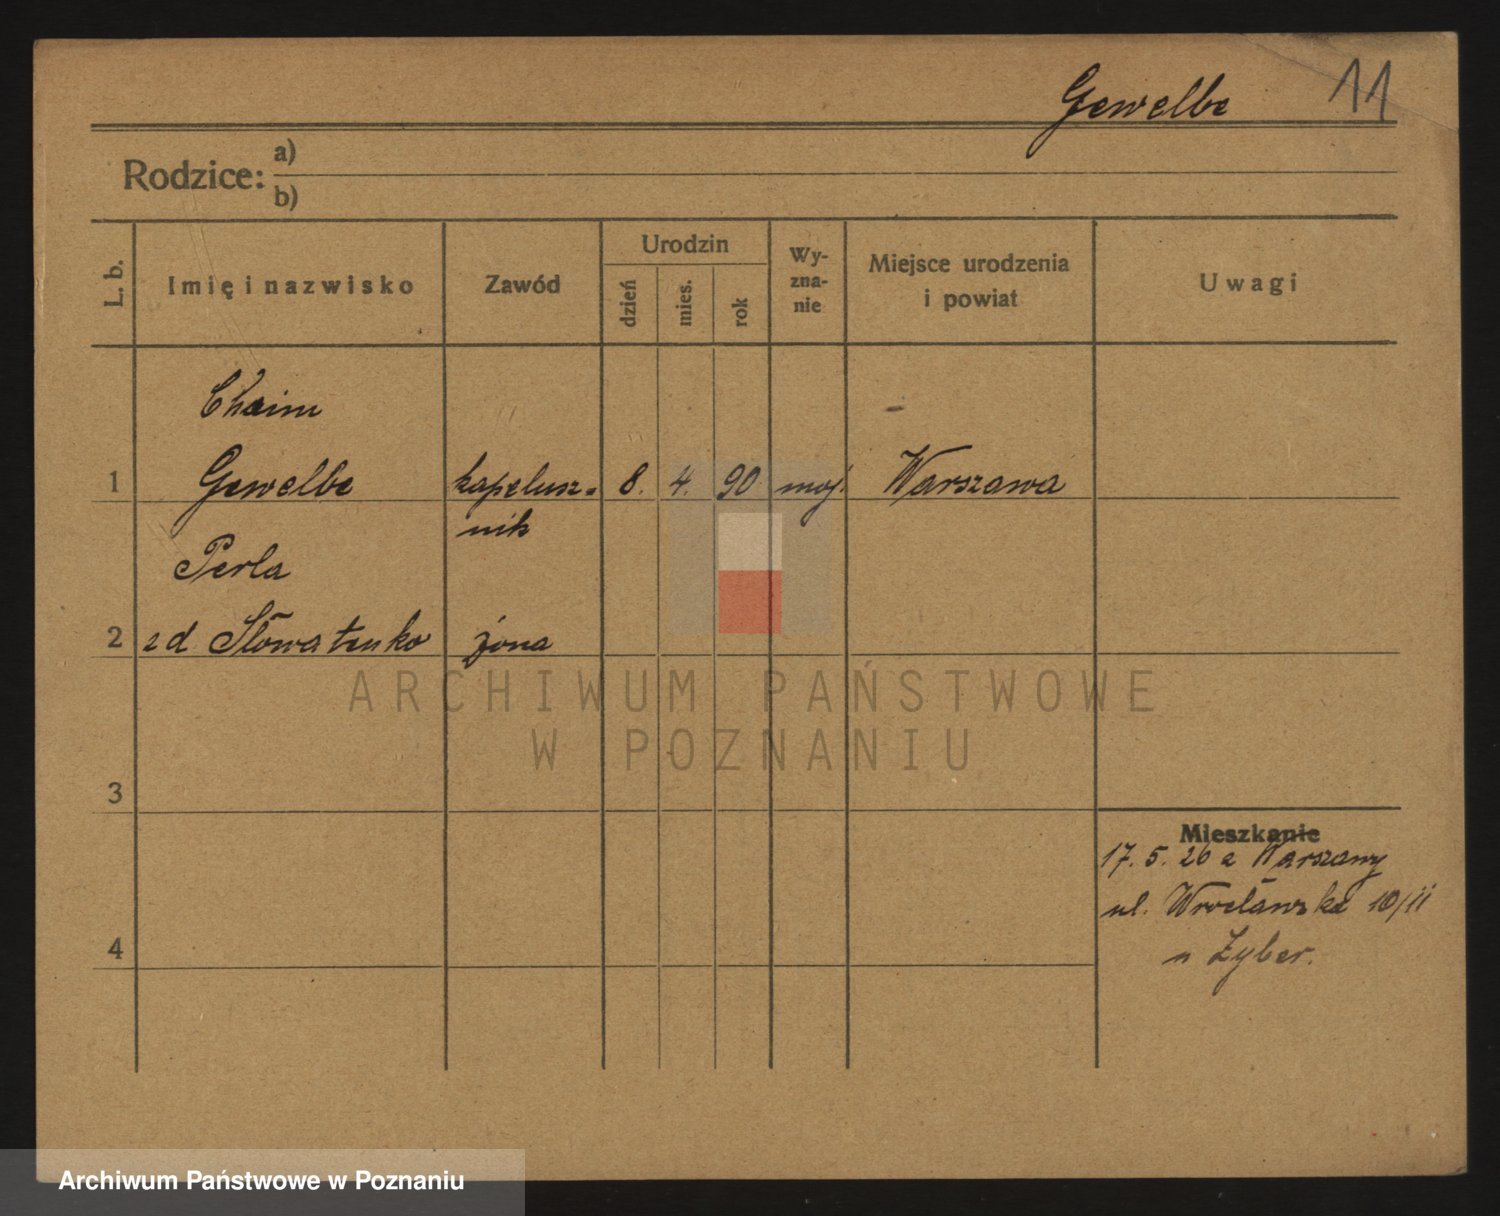 Gewelbe 11
Rodzice: a)
b)
L. b. Imię i nazwisko Zawód Urodzin dzień mies. rok Wyznanie Miejsce urodzenia i powiat Uwagi
Chaim
1 Gewelbe kapelusz= 8. 4. 90 moj. Warszawa
nik
Perla
2 zd Słowatenko żona
ARCHIWUM PAŃSTWOWE
W POZNANIU
3
Mieszkanie
17. 5. 26 z Warszawy
ul. Wrocławska 10/II
4 u Zyber.
Archiwum Państwowe w Poznaniu